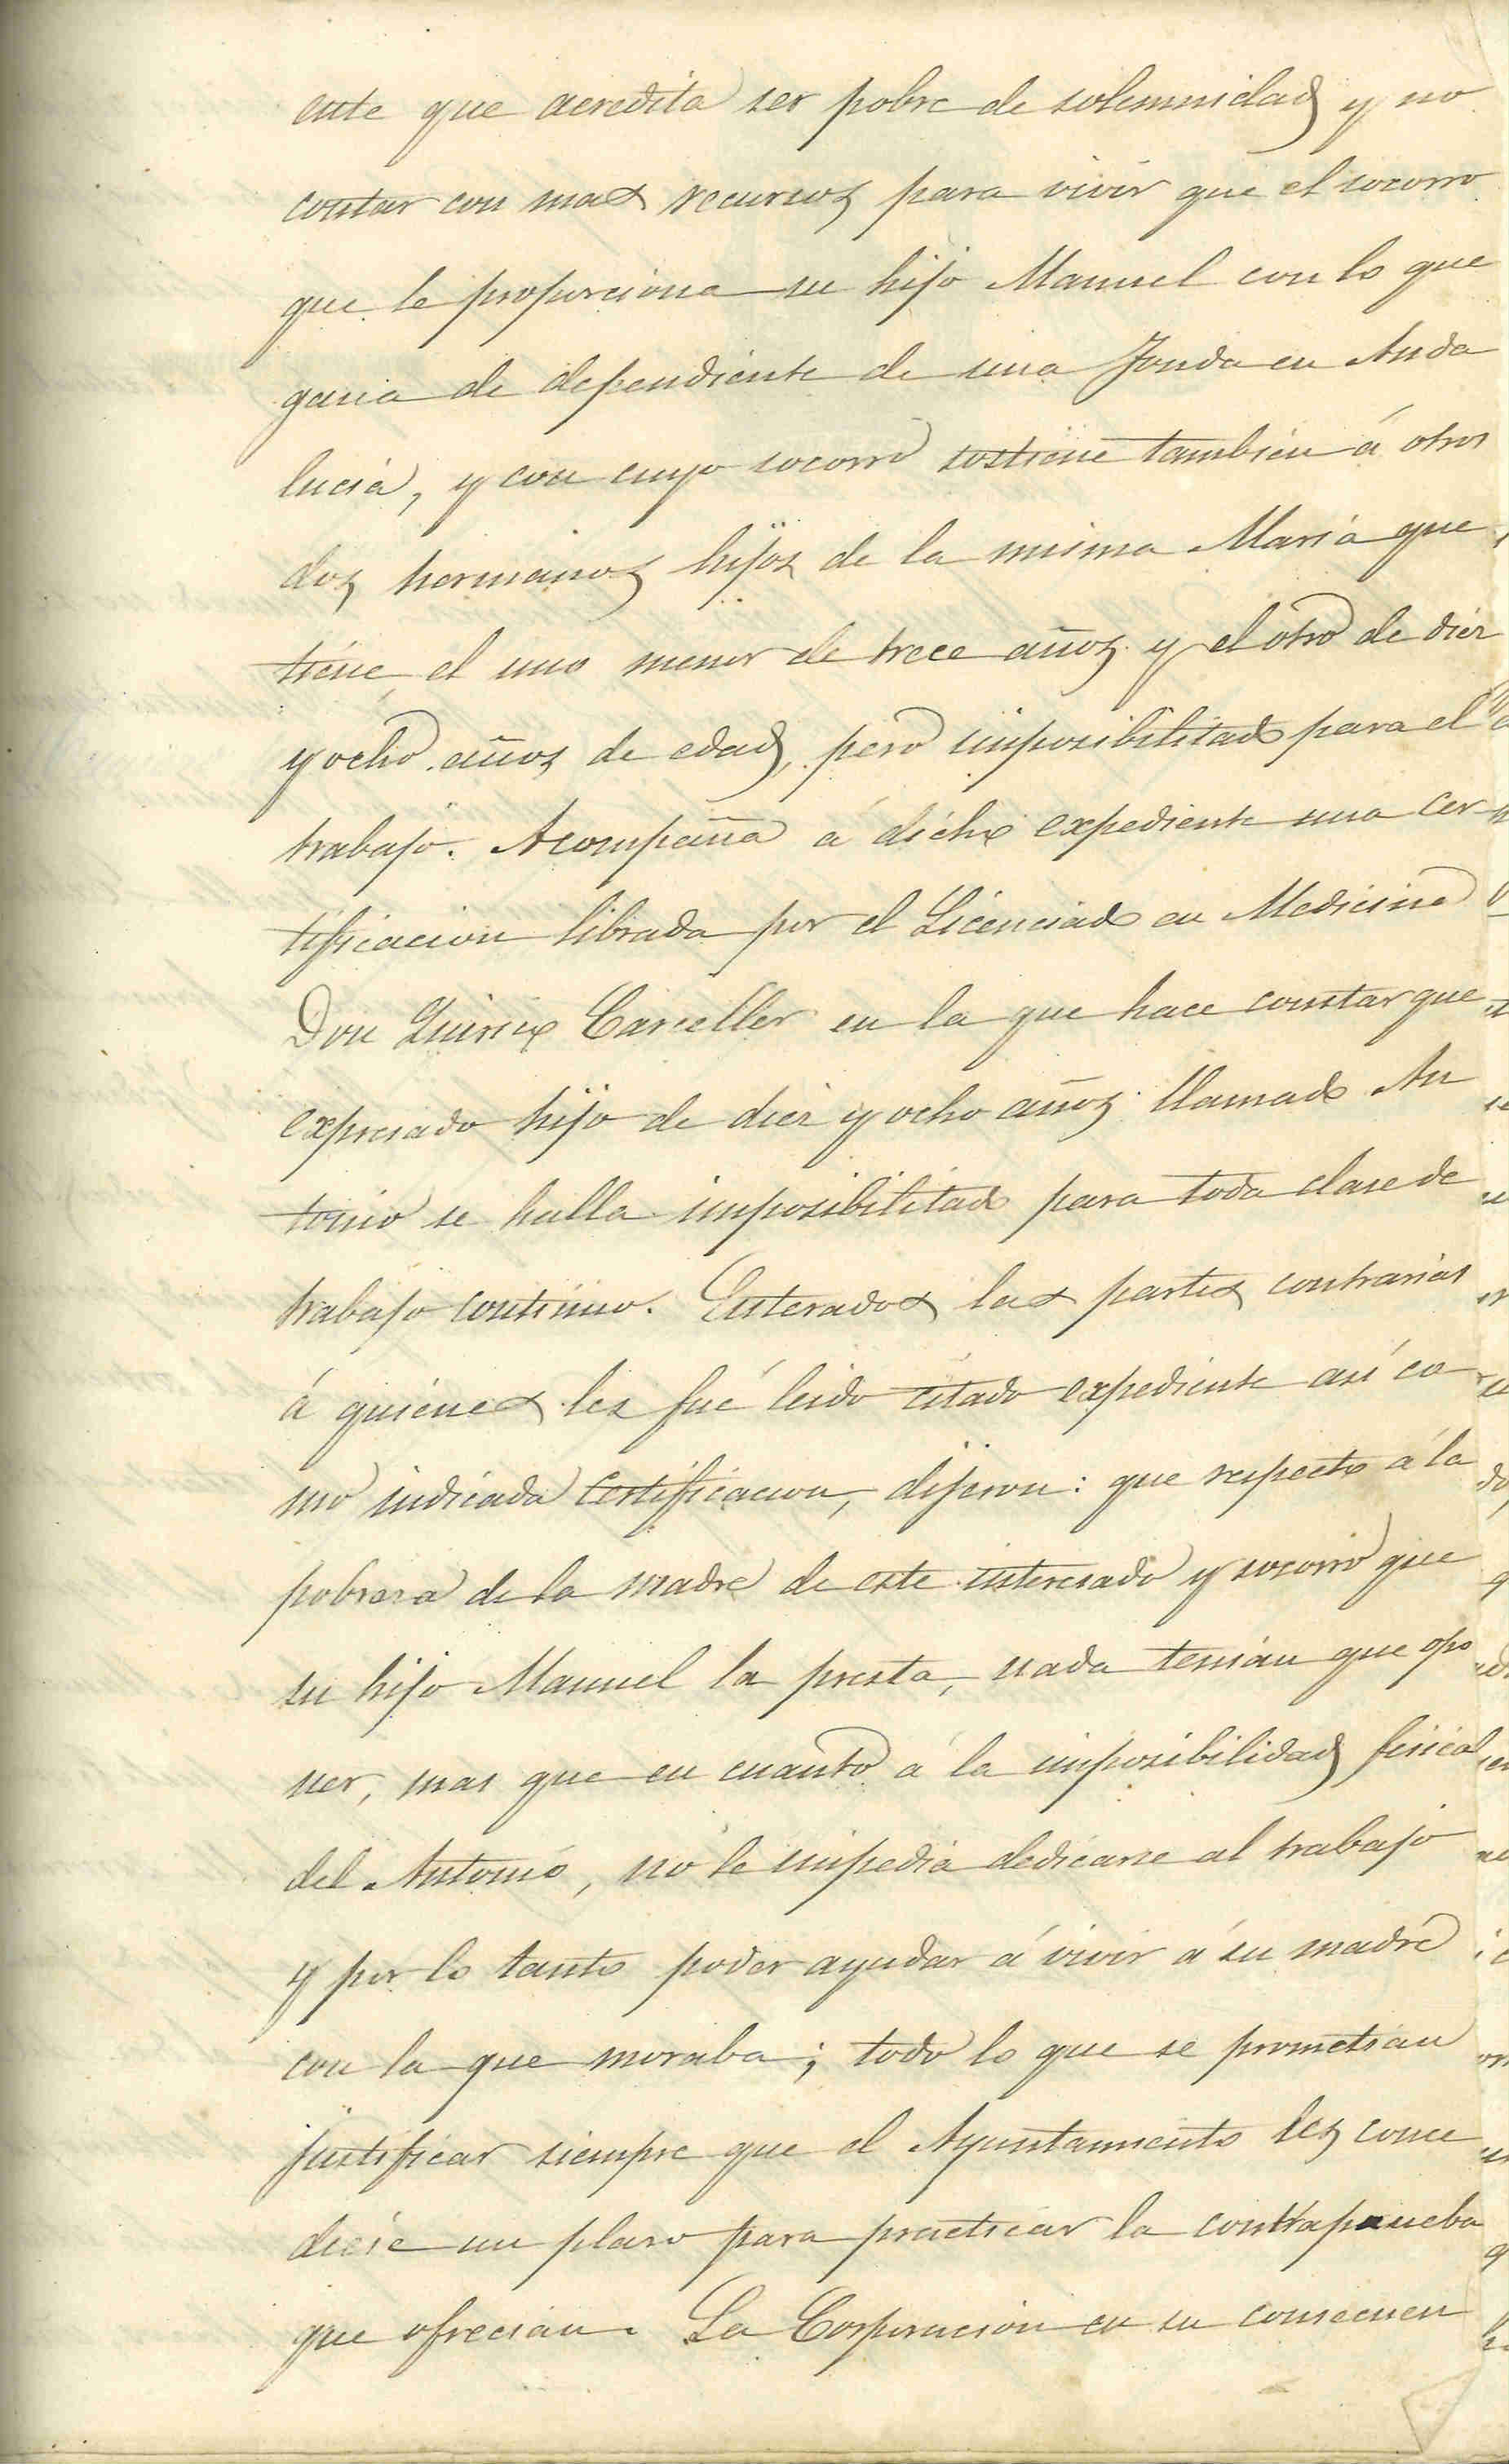 ente que acredita ser pobre de solemnidad y no
contar con mas recursos para vivir que el socorro
que le proporciona su hijo Manuel con lo que
gana de dependiente de una fonda en Anda
lucia, y con cuyo socorro sostiene tambien á otros
dos hermanos hijos de la misma María que
tiene el uno menor de trece años y el otro de diez
y ocho años de edad, pero imposibilitado para el
trabajo. Acompaña á dicho expediente una cer-
tificacion librada por el Licenciado en Medicina
Don Quirico Carceller en la que hace constar que
expresado hijo de diez y ocho años llamado An
tonio se halla imposibilitado para toda clase de
trabajo contínuo. Enterados las partes contrarias
á quienes les fué leido citado expediente así co-
mo indicada certificacion, dijeron: que respecto á la
pobreza de la madre de este interesado y socorro que
su hijo Manuel la presta, nada tenian que opo
ner, mas que en cuanto á la imposibilidad fisica
del Antonio, no le impedia dedicarse al trabajo
y por lo tanto poder ayudar á vivir á su madre
con la que moraba; todo lo que se prometian
justificar siempre que el Ayuntamiento les conce
diese un plazo para practicar la contraprueba
que ofrecian. La Corporacion en su consecuen